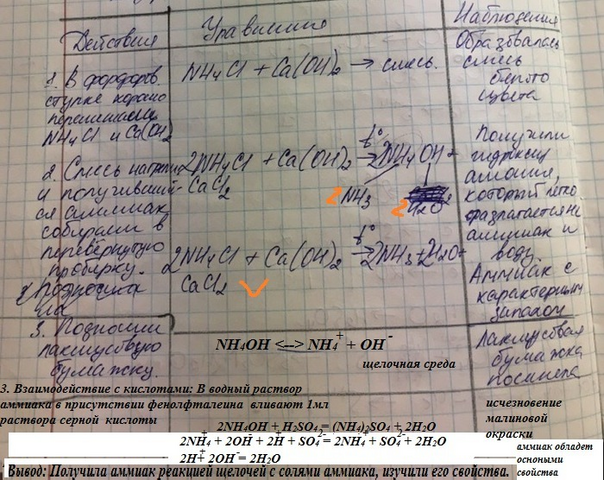 Действия
Уравнения
Наблюдения
1. В фарфоров
ступке хорошо
перемешали
NH4Cl и Ca(OH)2
NH4Cl + Ca(OH)2 → смесь.
Образовалась
смесь
белого
цвета
2. Смесь нагрели
и получивший-
ся аммиак
собирали в
перевёрнутую
пробирку.
2NH4Cl + Ca(OH)2 t° → 2NH4OH +
CaCl2
2NH3 2H2O
2NH4Cl + Ca(OH)2 t° → 2NH3 + 2H2O +
CaCl2
Получили
гидроксид
аммония,
который легко
разлагается на
аммиак и
воду
Аммиак с
характерным
запахом
3. Подносим
лакмусовую
бумажку.
NH4OH <--> NH4+ + OH-
щелочная среда
Лакмусовая
бумажка
посинела
3. Взаимодействие с кислотами: В водный раствор
аммиака в присутствии фенолфталеина вливают 1мл
раствора серной кислоты
2NH4OH + H2SO4 = (NH4)2SO4 + 2H2O
2NH4+ + 2OH- + 2H+ + SO4 2- = 2NH4+ + SO4 2- + 2H2O
2H+ + 2OH- = 2H2O
исчезновение
малиновой
окраски
аммиак обладет
осноными
свойства
Вывод: Получила аммиак реакцией щелочей с солями аммиака, изучили его свойства.